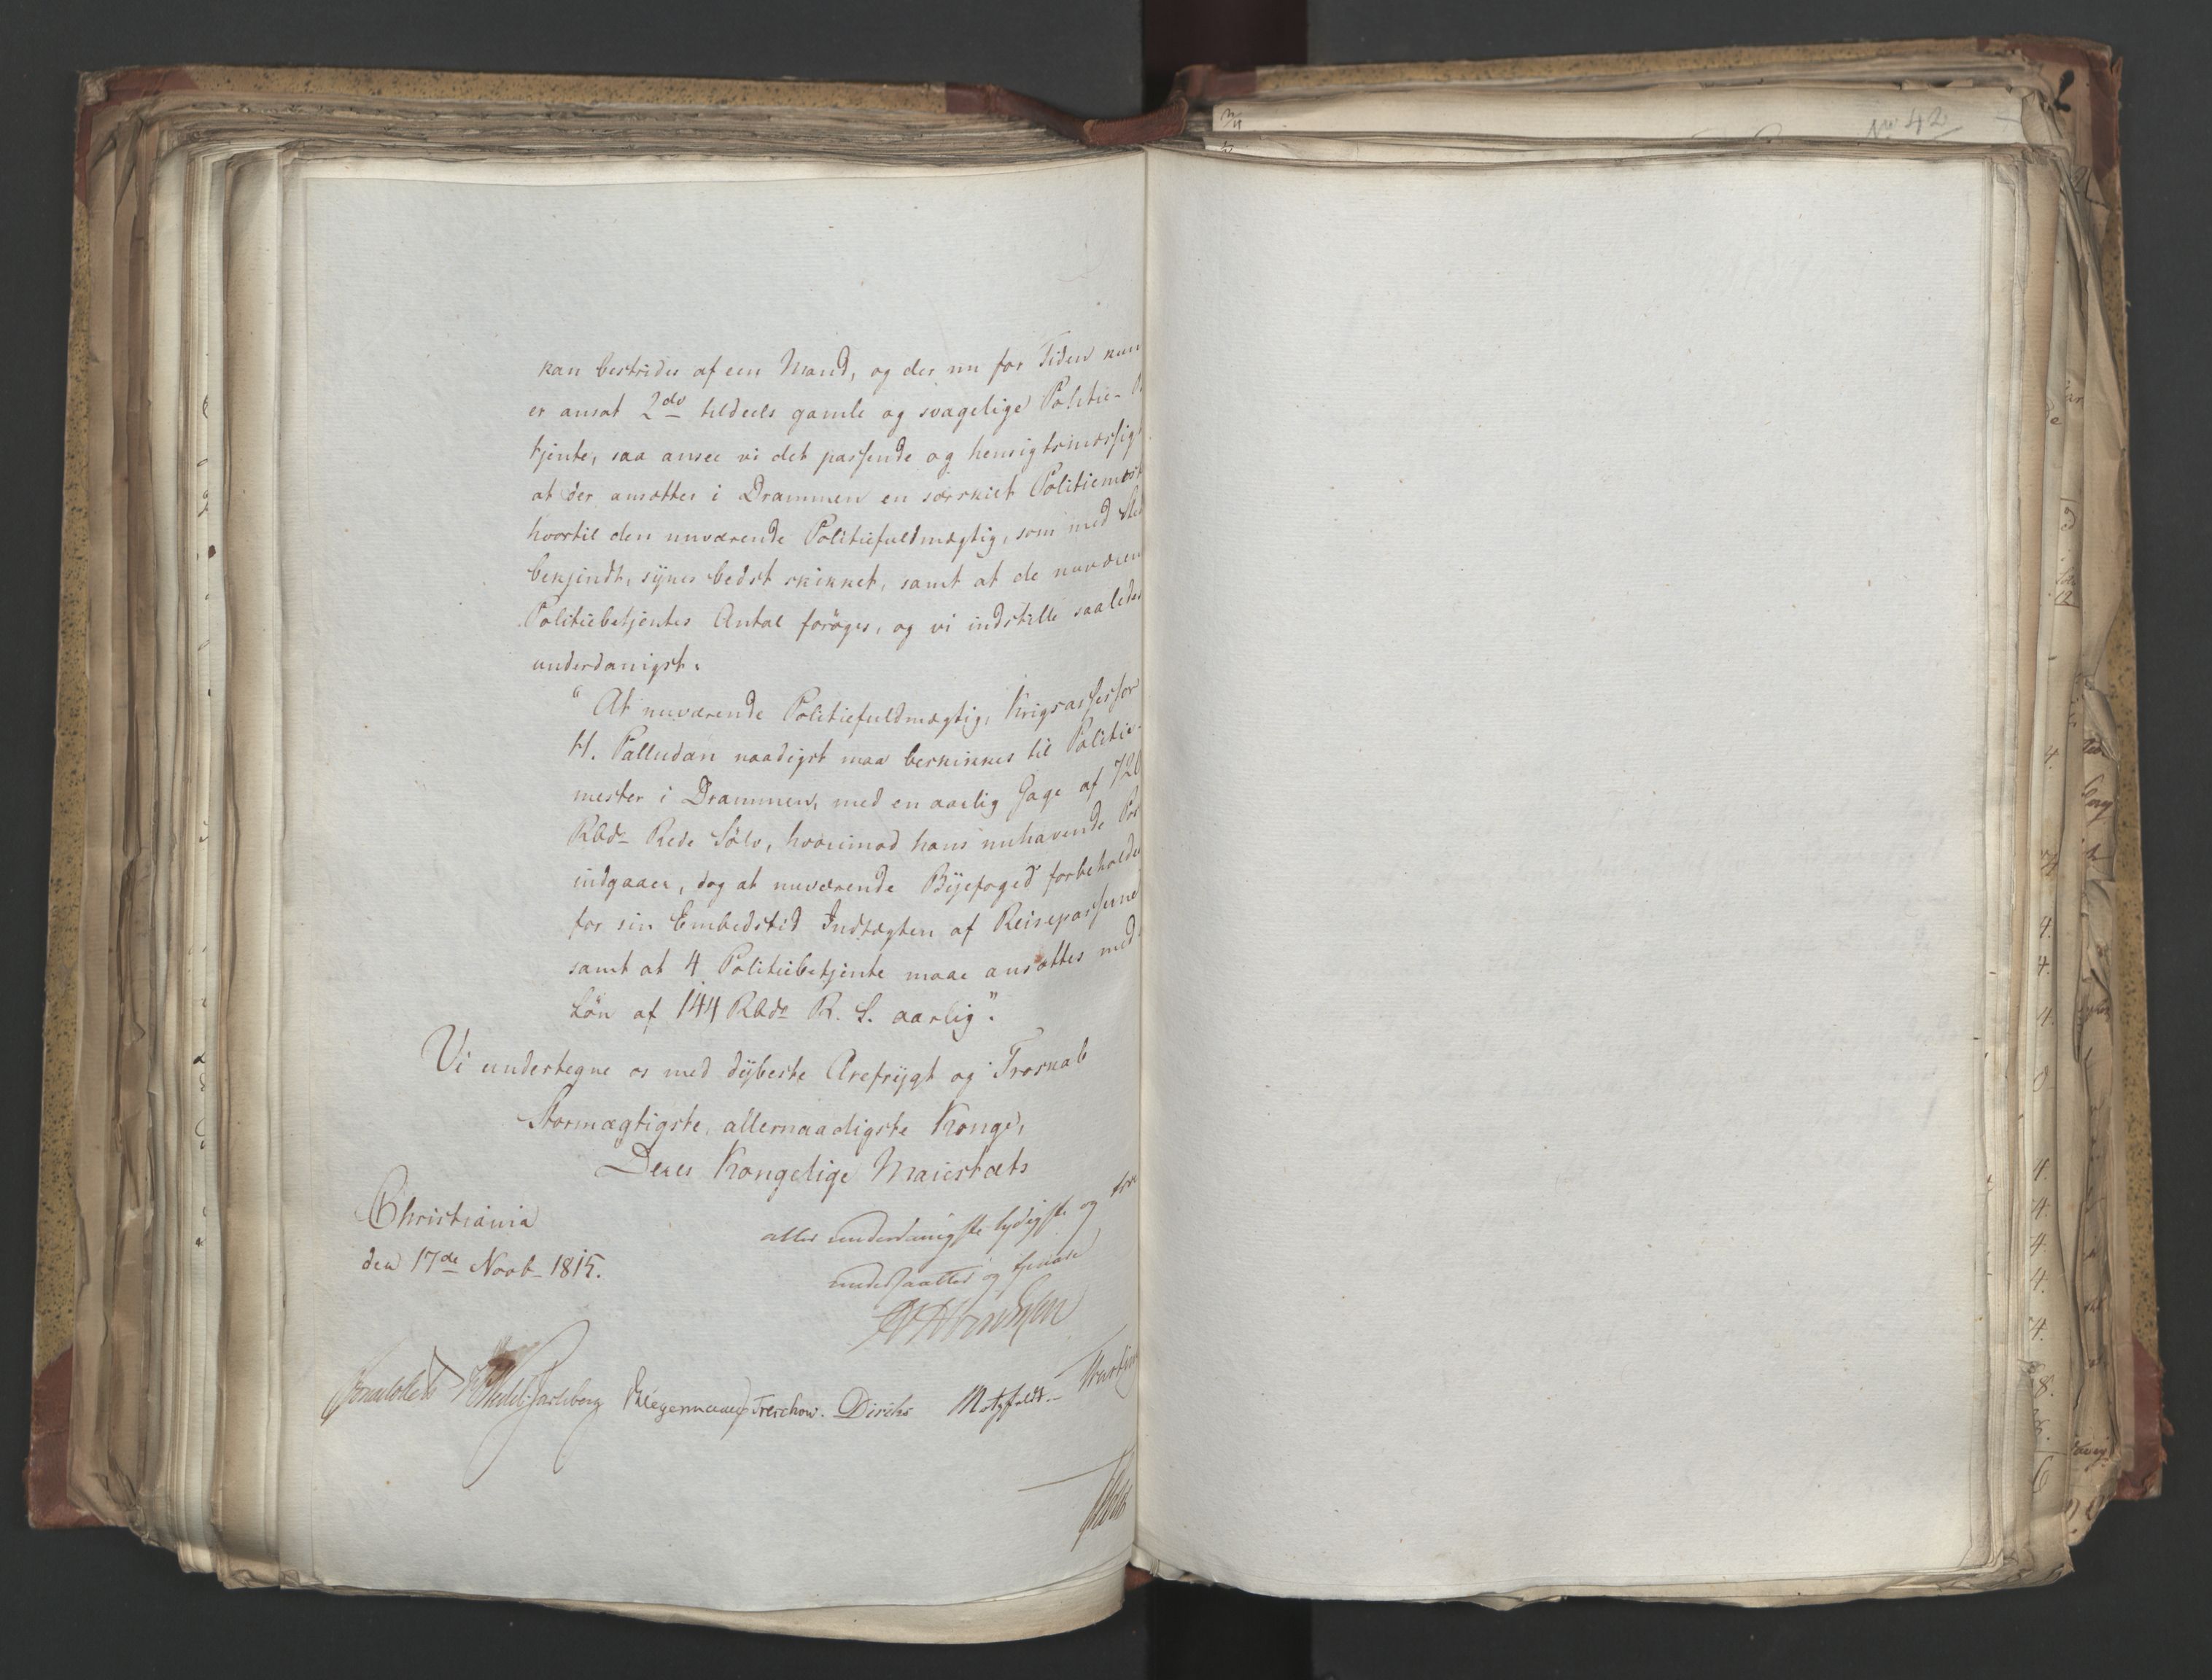 kan bestrides af een Mand, og der nu for Tiden kun
er ansat 2de tildeels gamle og svagelige Politie-
tjente, saa ansee vi det passende og hensigtsmæssigt
at der ansættes i Drammen en særskilt Politiemest
hvortil den nuværende Politiefuldmægtig, som med Sted
bekjendt, synes bedst skikket, samt at de nuværen
Politiebetjentes Antal forøges, og vi indstille saaledes
underdanigst:
"At nuværende Politiefuldmægtig, Krigsassessor
H. Palludan naadigst maa beskikkes til Politie-
mester i Drammen, med en aarlig Gage af 720
Rbd. Rede Sölv, hvorimod hans nuhavende Po
indgaaer, dog at nuværende Byefoged forbeholdes
for sin Embedstid Indtægten af Reisepasserne
samt at 4 Politiebetjente maae ansættes med
Lön af 144 Rbd. R. S. aarlig".
Vi undertegne os med dybeste Ærefrygt og Troskab
Stormægtigste, allernaadigste Konge,
Deres Kongelige Maiestæts
Christiania
den 17de Novb. 1815.
aller underdanigste lydigste og tro
undersaatter og tjenere
Sommerhielm Wedel-Jarlsberg Hegermann Treschow. Diriks Motzfeldt.
No 42